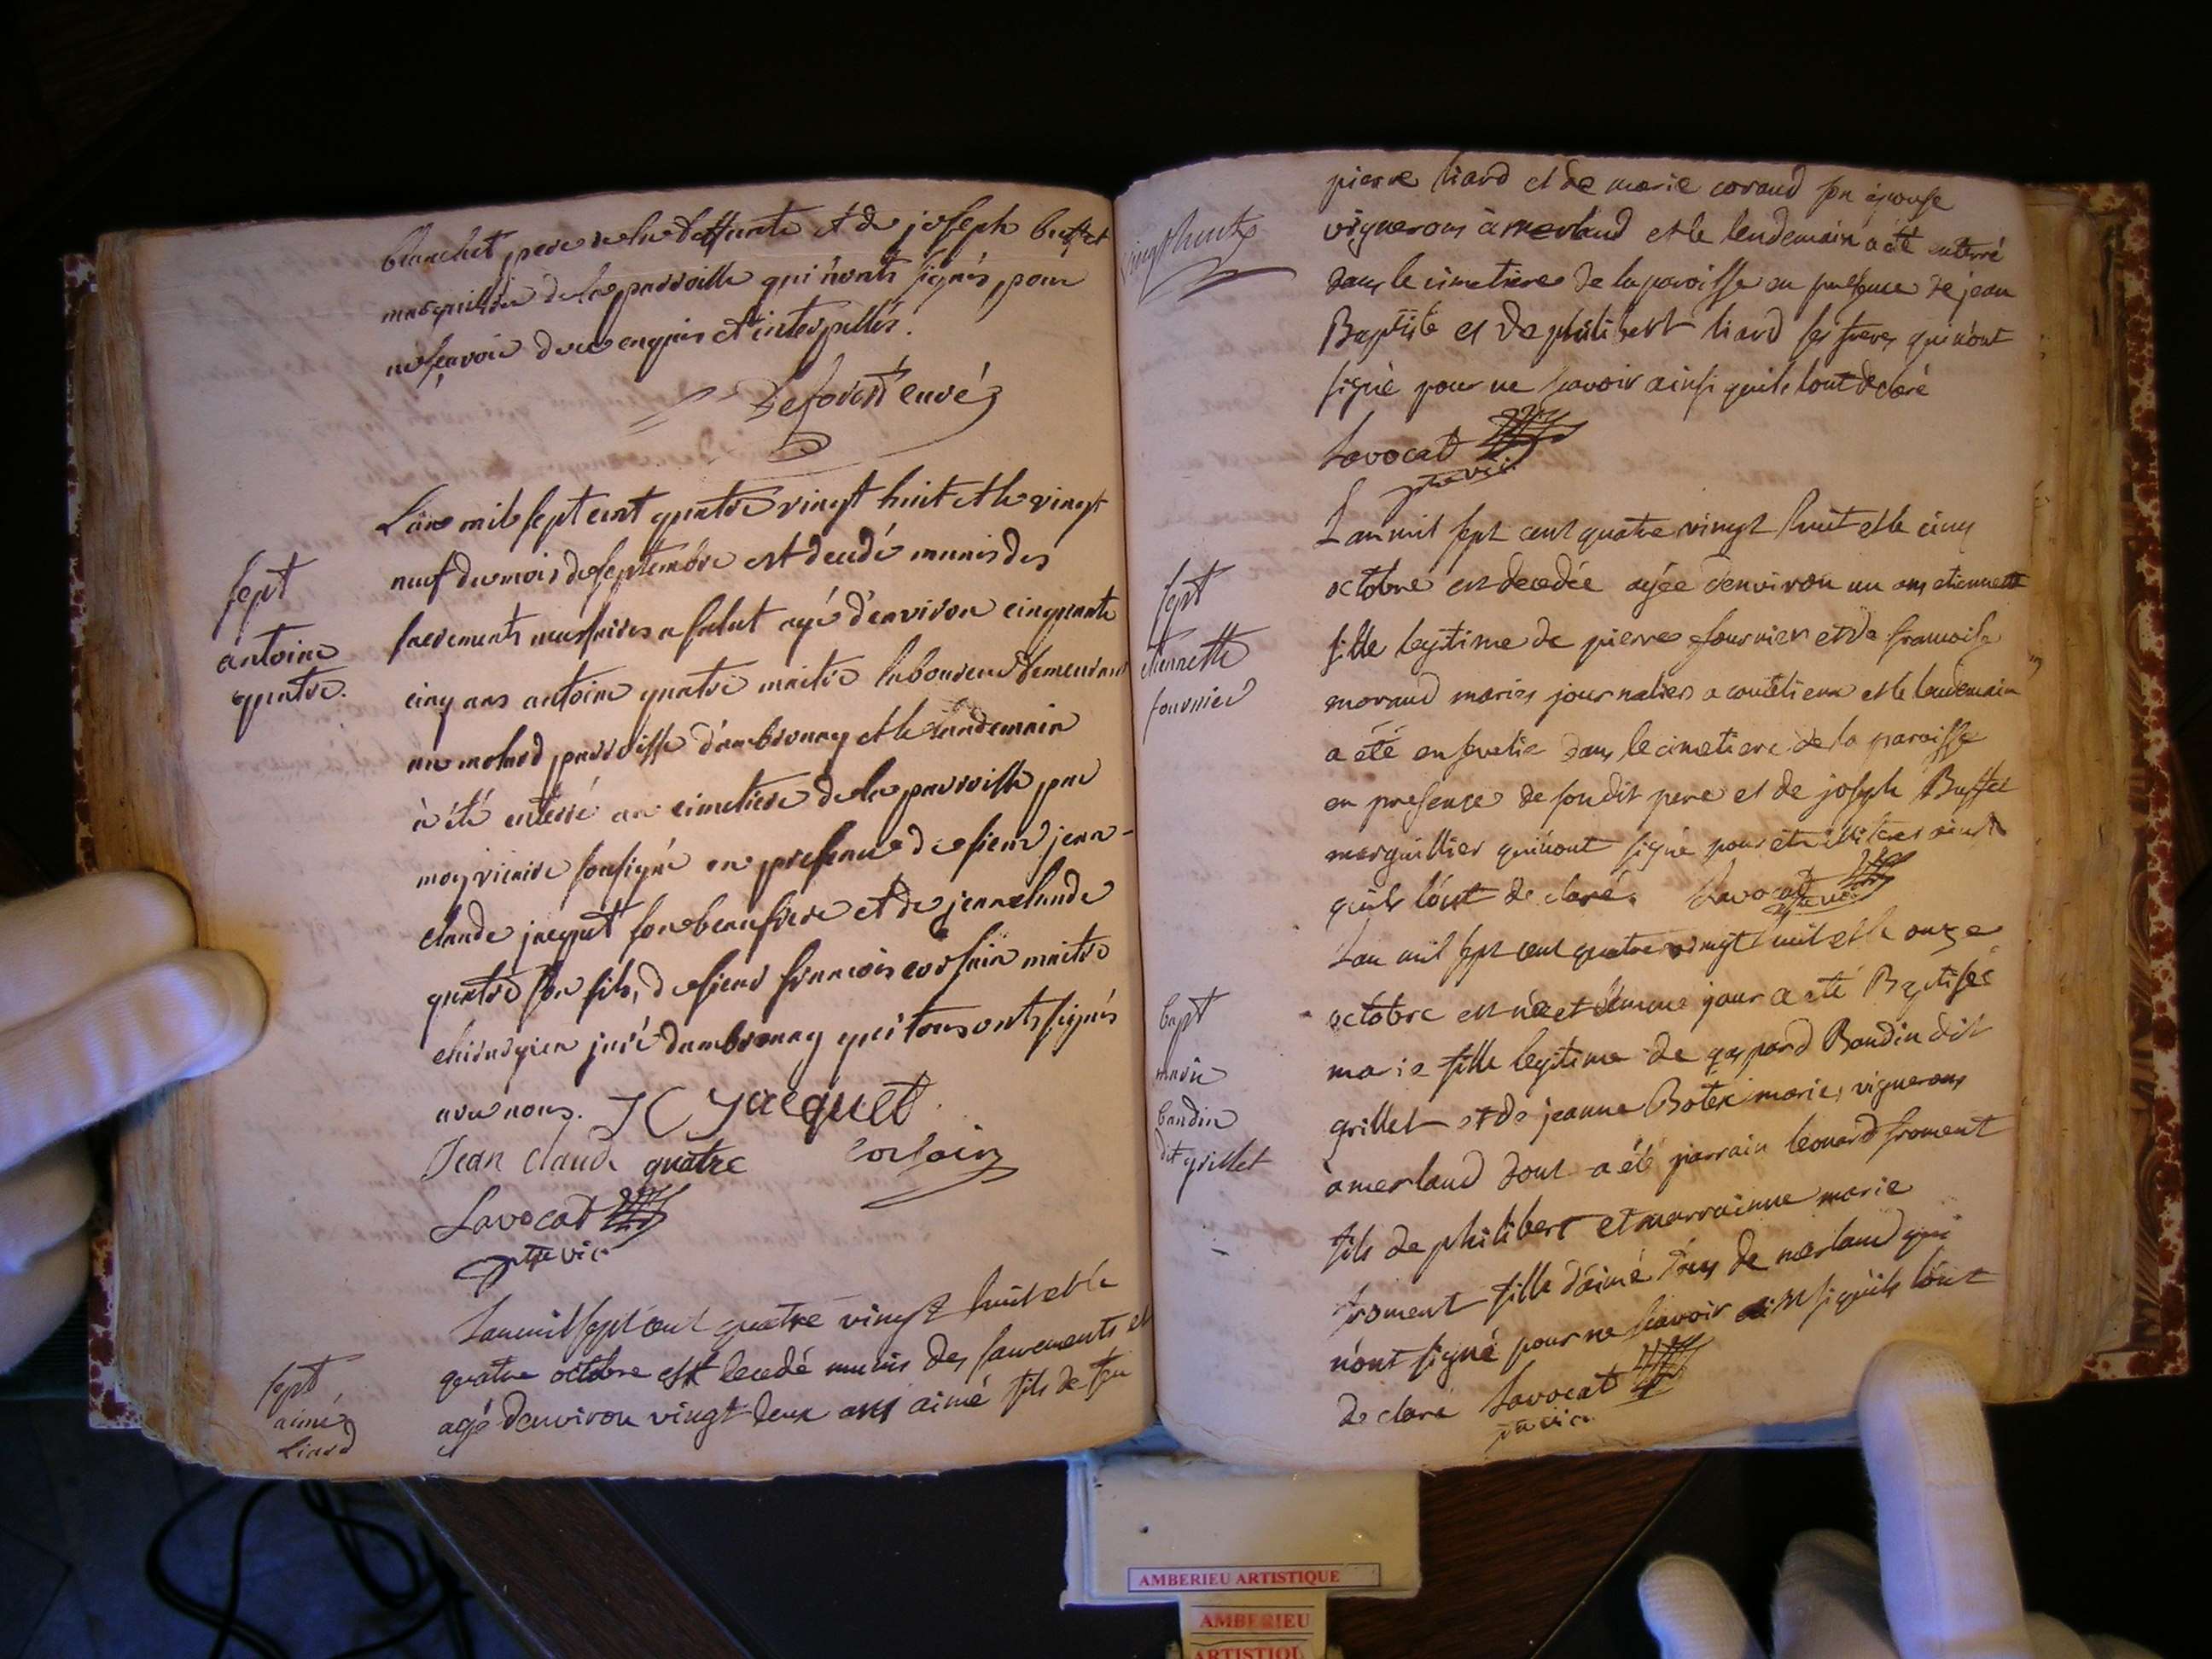 blanchet pere de la deffunte et de joseph buffet
marguillier de la parroisse qui n'onts signés pour
ne scavoir de ce enquis et interpellés.
Deforest curé
sept
antoine
quatre.
L'an mil sept cent quatre vingt huit et le vingt
neuf du mois de septembre est decedé munis des
sacrements necessaires a salut agé d'environ cinquante
cinq ans antoine quatre maitre laboureur demeurant
au molard parroisse d'ambronay et le landemain
à été enterré au cimetiere de la parroisse par
moy vicaire soussigné en presence de sieur jean-
claude jacquet son beaufrere et de jean claude
quatre son fils, de sieur francois corsain maitre
chirurgien juré d'ambronay qui tous onts signés
avec nous. J C Jacquet
Jean claude quatre corsain
Lavocat
ptre vic
sept
aimé
liard
L'an mil sept cent quatre vingt huit et le
quatre octobre est decedé munis des sacrements et
agé denviron vingt deux ans aimé fils de feu
vingt huit
pierre liard et de marie coraud son epouse
vignerons à merland et le lendemain a été enterré
dans le cimetiere de la paroisse en presence de jean
Baptiste et de philibert liard ses freres qui n'ont
signé pour ne scavoir ainsi quils l'ont declaré
Lavocat
ptre vic.
sept
etiennette
fournier
L'an mil sept cent quatre vingt huit et le cinq
octobre est decedée agée denviron un ans etiennette
fille legitime de pierre fournier et de francoise
moraud mariés journaliers a coutelieux et le lendemain
a été ensevelie dans le cimetiere de la paroisse
en presence de son dit pere et de joseph Buffet
marguillier qui n'ont signé pour etre illiteres
quils l'ont declaré. Lavocat
ptre vic
bapt
marie
baudin
dit grillet
L'an mil sept cent quatre vingt huit et le onze
octobre est née et le meme jour a eté Baptisée
marie fille legitime de gaspard Baudin dit
grillet et de jeanne Botex mariés vignerons
à merland dont a été parrain leonard froment
fils de philibert et marrainne marie
froment fille d'aimé tous de merland qui
n'ont signé pour ne scavoir ainsi quils l'ont
declaré Lavocat
ptre vic.
AMBERIEU ARTISTIQUE
AMBERIEU